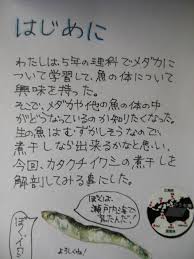 はじめに
わたしは、5年の理科でメダカに
ついて学習して、魚の体について
興味を持った。
そこで、メダカや他の魚の体の中
がどうなっているのか知りたくなった。
生の魚はむずかしそうなので、
煮干しなら出来るかなと思い、
今回、カタクチイワシの煮干しを
解剖してみる事にした。
ぼくは、
瀬戸内海で
育ったんだ!
よろしくね!